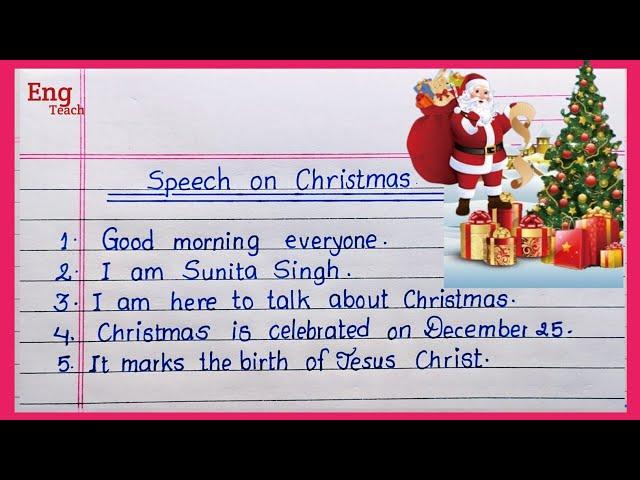 Eng
Teach
Speech on Christmas
1. Good morning everyone.
2. I am Sunita Singh.
3. I am here to talk about Christmas.
4. Christmas is celebrated on December 25.
5. It marks the birth of Jesus Christ.